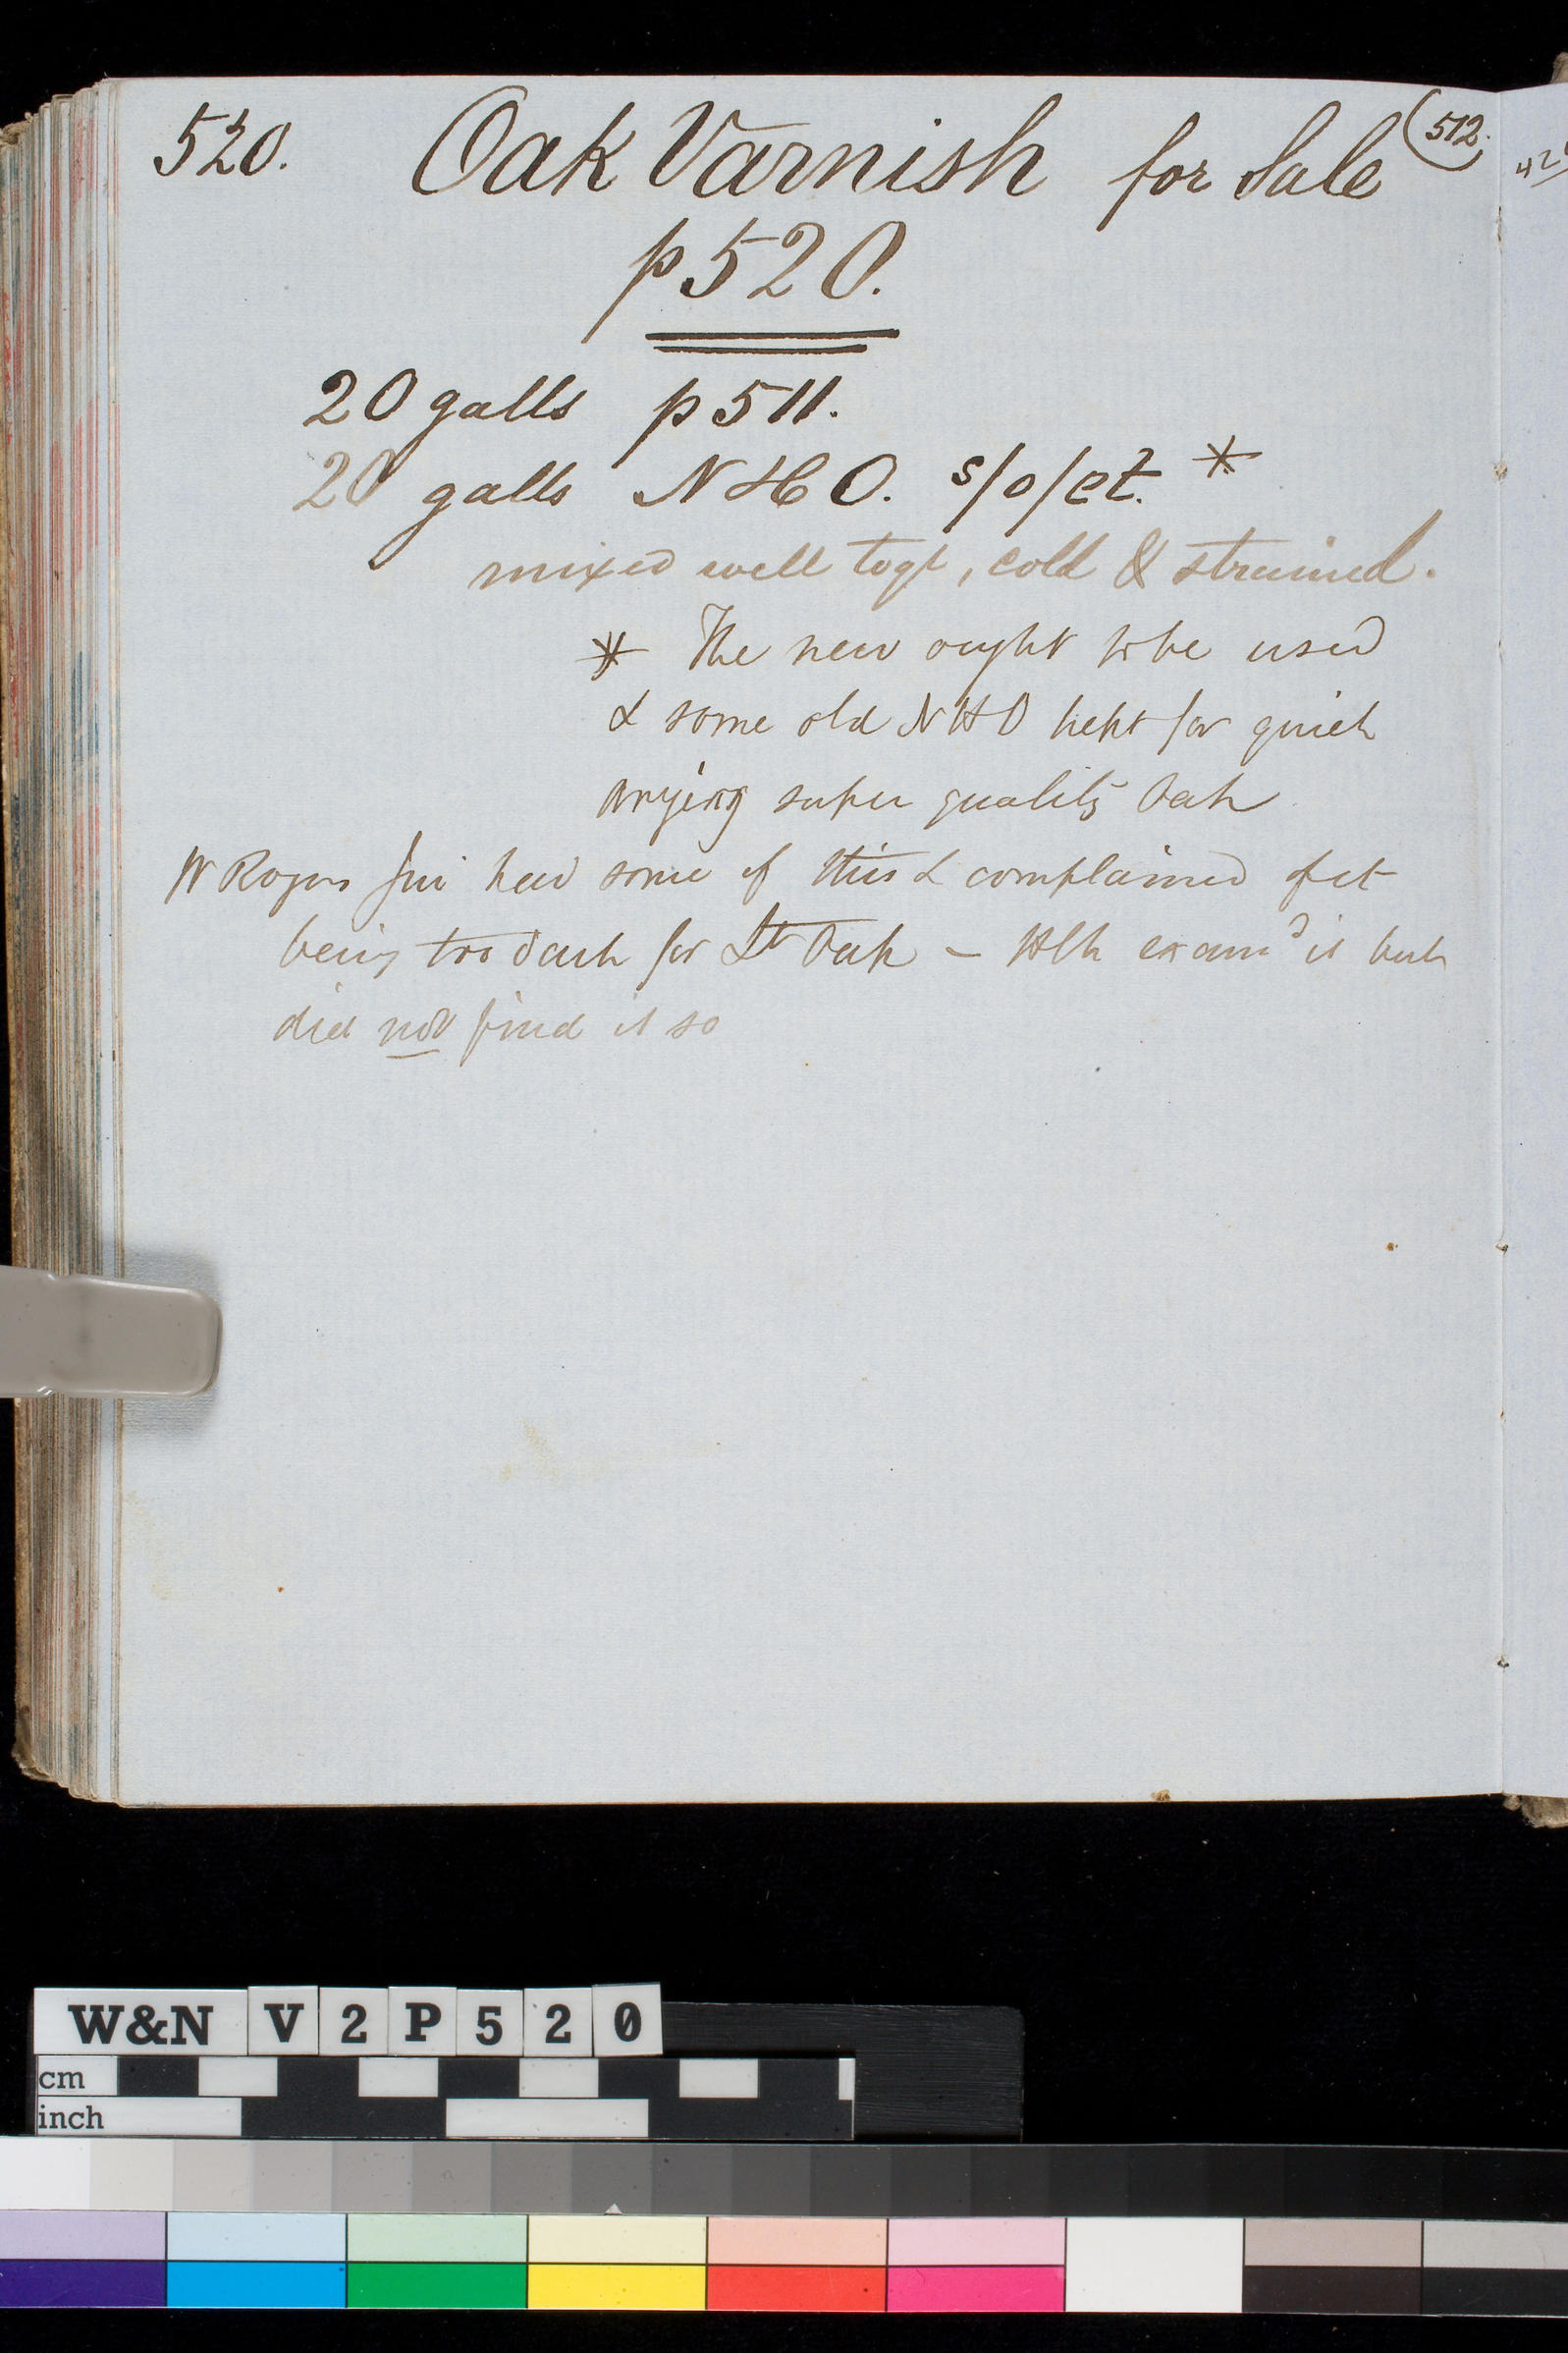 520. Oak Varnish for Sale (512.)
p 520.
20 galls p 511.
20 galls N H O. s/o/ct. *
mixed well togr, cold & strained.
* The new ought to be used
& some old N H O kept for quick
drying super quality Oak
W Rogers had some of this & complained of it
being too dark for Lt Oak – examd it but
did not find it so
W&N V 2 P 5 2 0
cm
inch